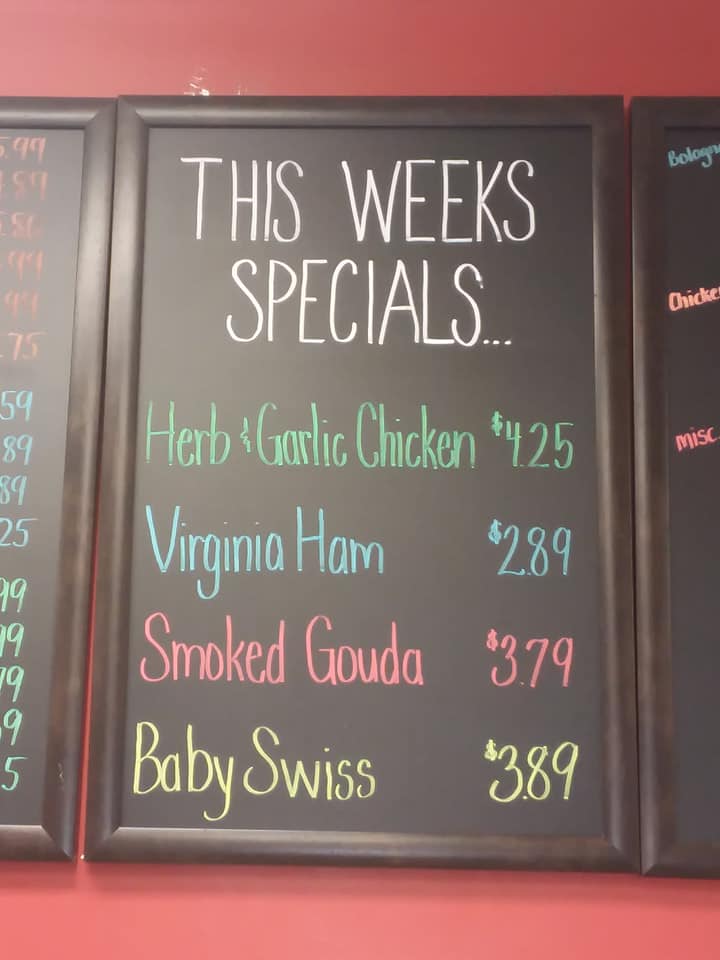 THIS WEEKS
SPECIALS...
Herb & Garlic Chicken $4.25
Virginia Ham $2.89
Smoked Gouda $3.79
Baby Swiss $3.89
5.99
.89
5.86
.99
.99
.75
59
89
89
25
99
99
79
9
5
Chicke
misc.